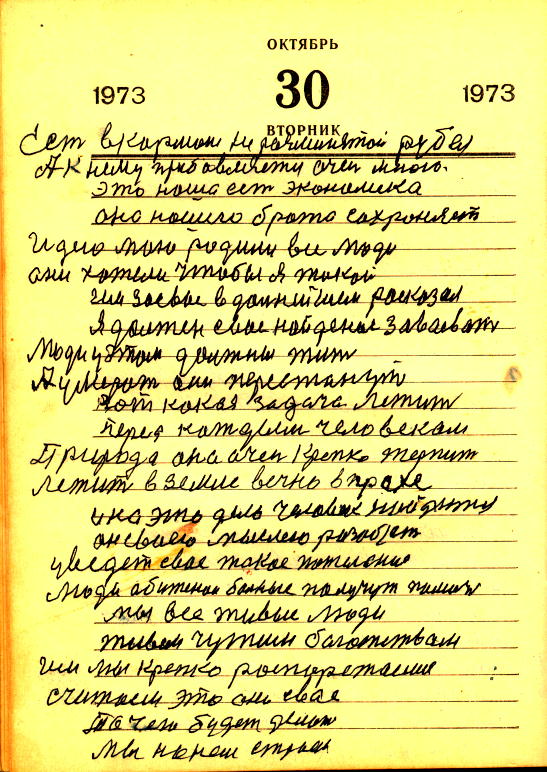 ОКТЯБРЬ
1973 30 1973
ВТОРНИК
Ест вкармане рубел
А к нему прибовляети очен много.
Это наша ест экономика
она нашего брата сахроняет
Идею маю родили все люди
они хотели чтобы я такой
им в росказал
Я должен свае найденое
Люди у этом должны жит
А умерат они перестанут
Вот какая задача лежит
перед каждым человекам
Природа она очен крепко терпит
лежит в земле вечно в прахе
и на это дело человек
он своею мыслею
уведет свае такое
Люди обиженое болные получут помощ
мы все живые люди
живем чужим богатствам
им мы крепко роспорежаемся
считаем это оно свае
та чего будет
мы на нем